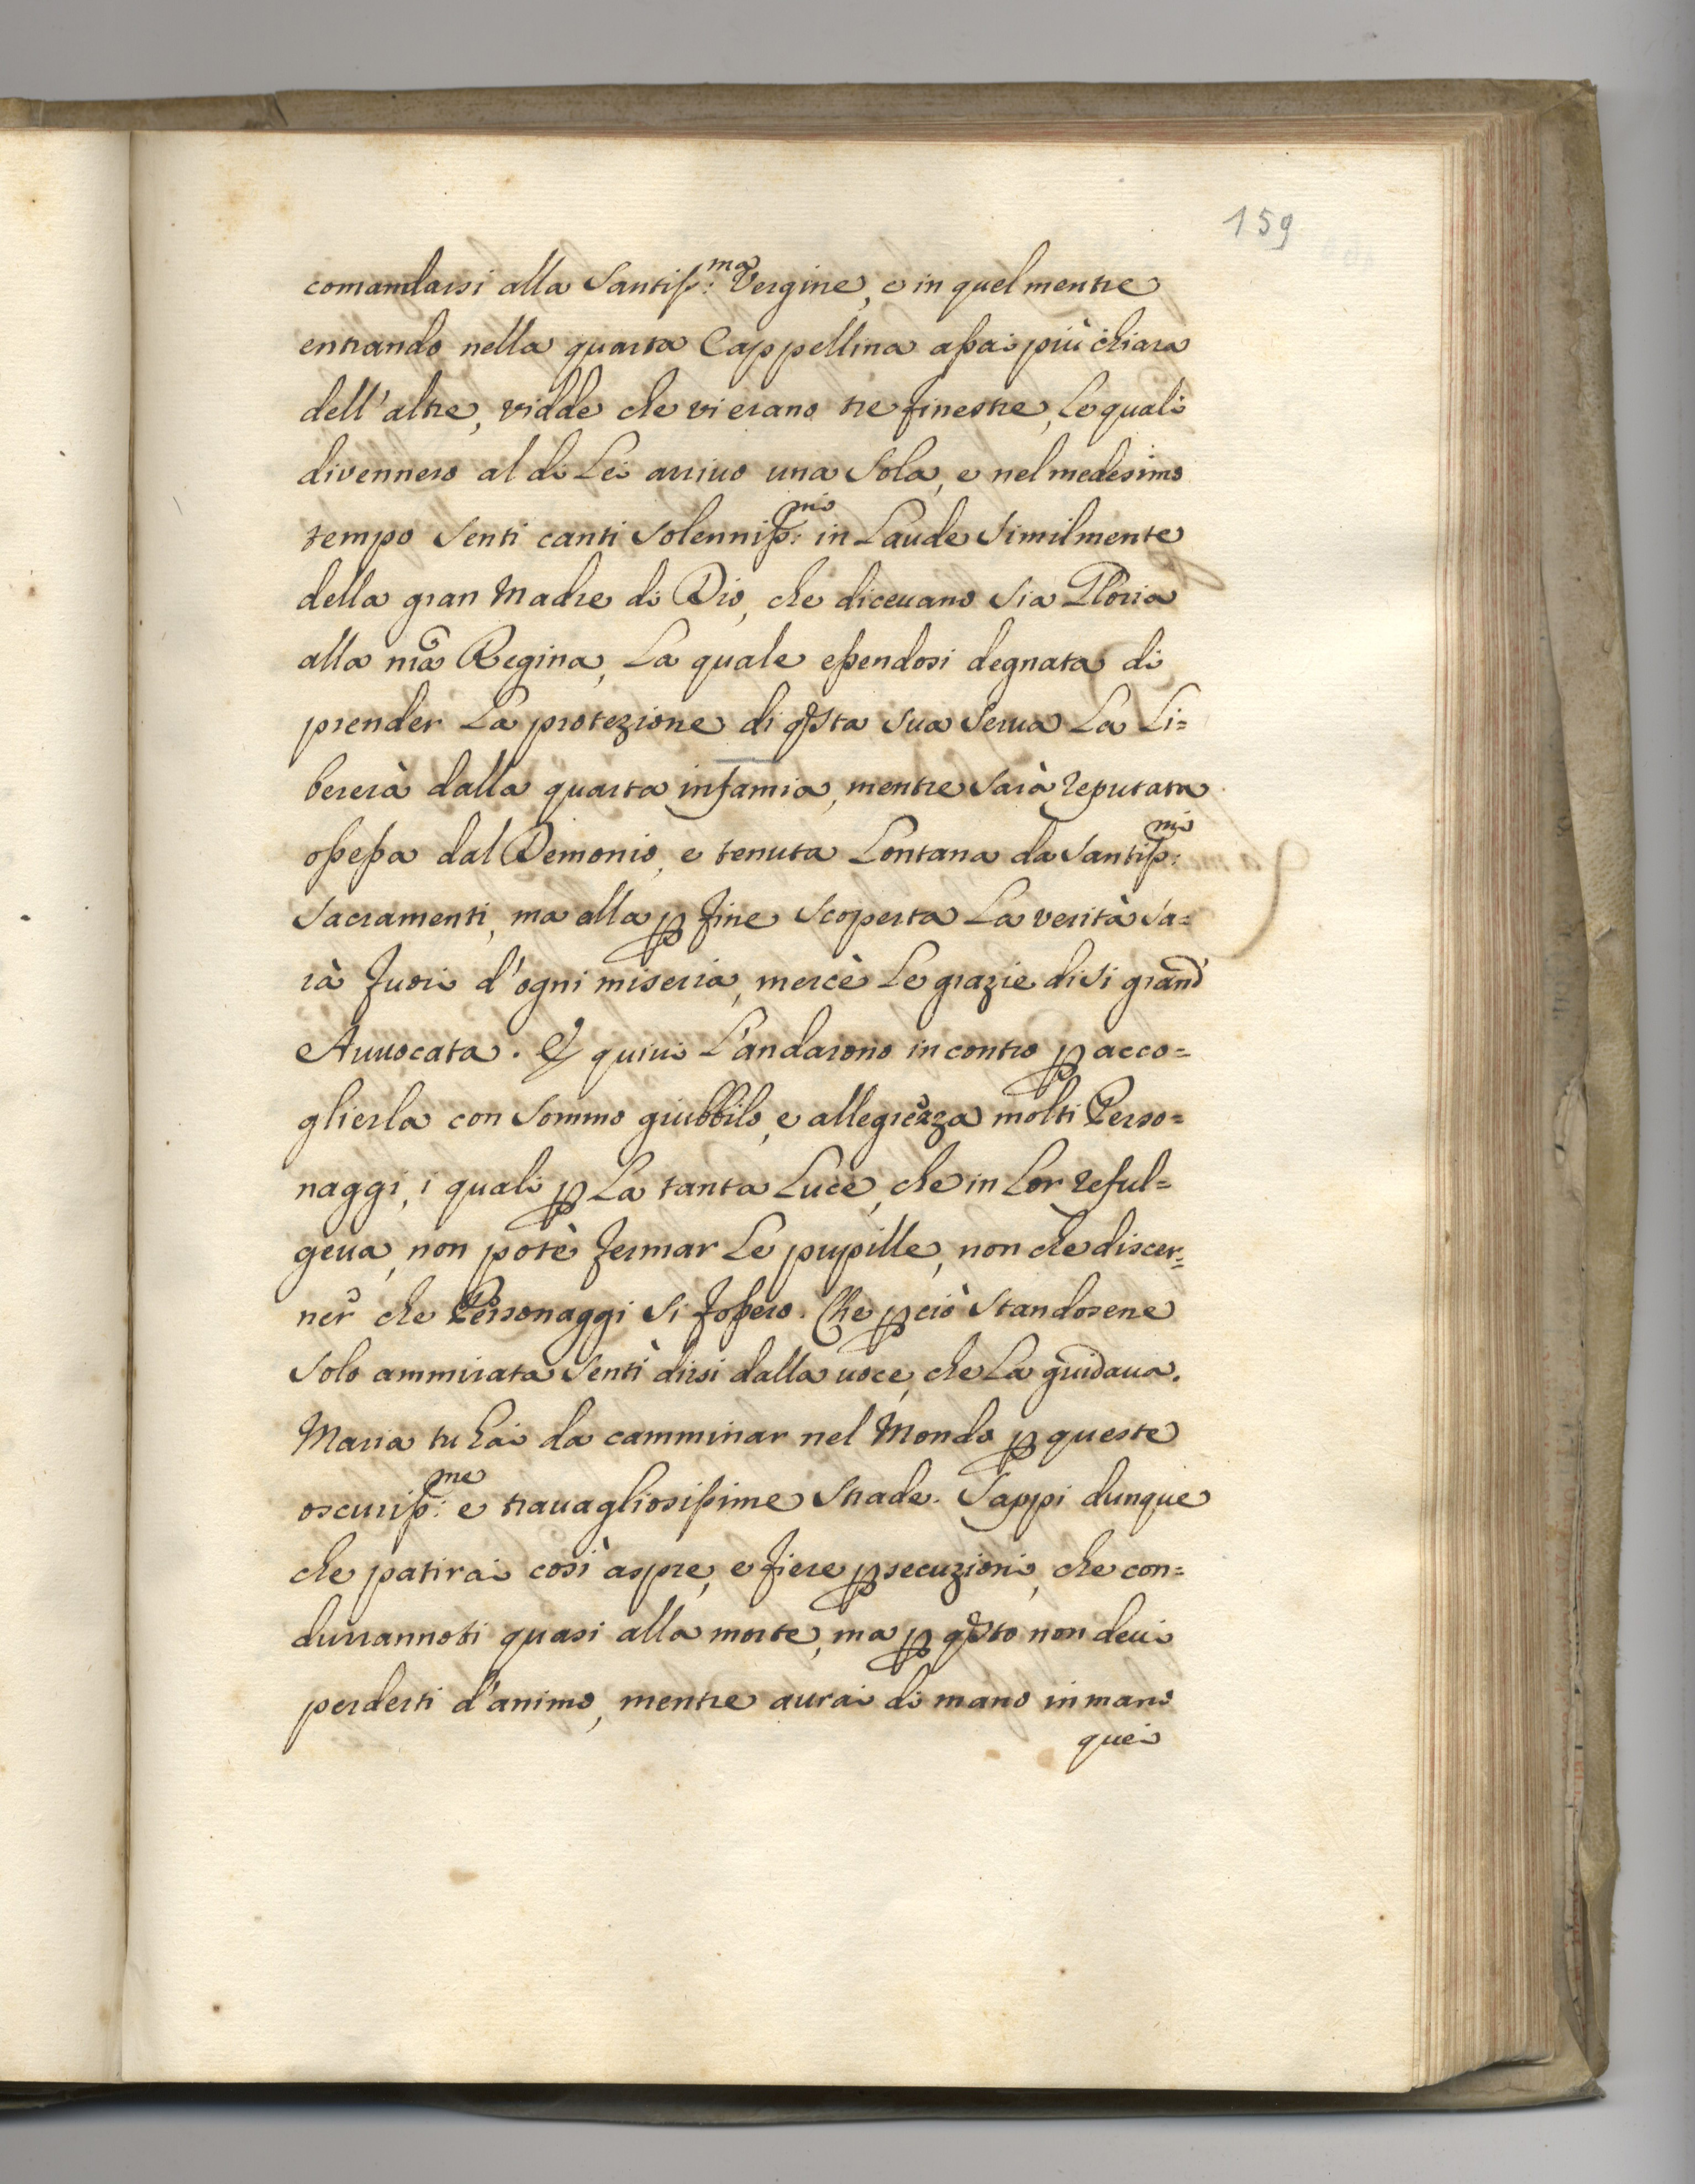 159
comandarsi alla Santiss:ma Vergine, e in quel mentre
entrando nella quarta Cappellina assai più chiara
dell'altre, vidde che vi erano tre finestre, Le quali
divennero al di Lei arriuo una Sola, e nel medesimo
tempo Senti canti Solenniss:mi in Laude Similmente
della gran Madre di Dio, che diceuano Sia Gloria
alla nr̃a Regina, La quale essendosi degnata di
prender La protezione di qs̃ta Sua Serua La Li=
bererà dalla quarta infamia, mentre Sarà reputata
ossessa dal Demonio, e tenuta Lontana da Santiss:mi
Sacramenti, ma alla ꝑ fine Scoperta La verità Sa=
rà fuori d'ogni miseria, mercè Le grazie di Si grand'
Auuocata. E quiui L'andarono incontro ꝑ acco=
glierla con Sommo giubbilo, e allegrezza molti Perso=
naggi, i quali ꝑ La tanta Luce, che in Lor reful=
geua, non potè fermar Le pupille, non che discer=
ner che Personaggi Si fossero. Che ꝑciò Standosene
Solo ammirata Sentì dirsi dalla uoce, che La guidaua.
Maria tu hai da camminar nel Mondo ꝑ queste
oscuriss:me e trauagliosissime Strade. Sappi dunque
che patirai così aspre, e fiere ꝑsecuzioni, che con=
durrannoti quasi alla morte, ma ꝑ qs̃to non deui
perderti d'animo, mentre aurai di mano in mano
quei